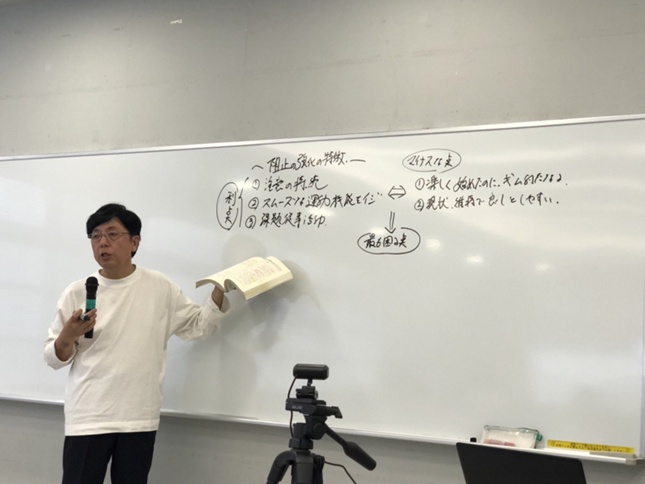 〜 阻止の強化の特徴 〜
利点
① 注意の持続
② スムーズな運動機能モイジ
③ 課題従事活動
⇔
マイナスな点
① 楽しく始めたのに、ギム的になる。
② 現状維持で良しとしやすい。
最も困る点